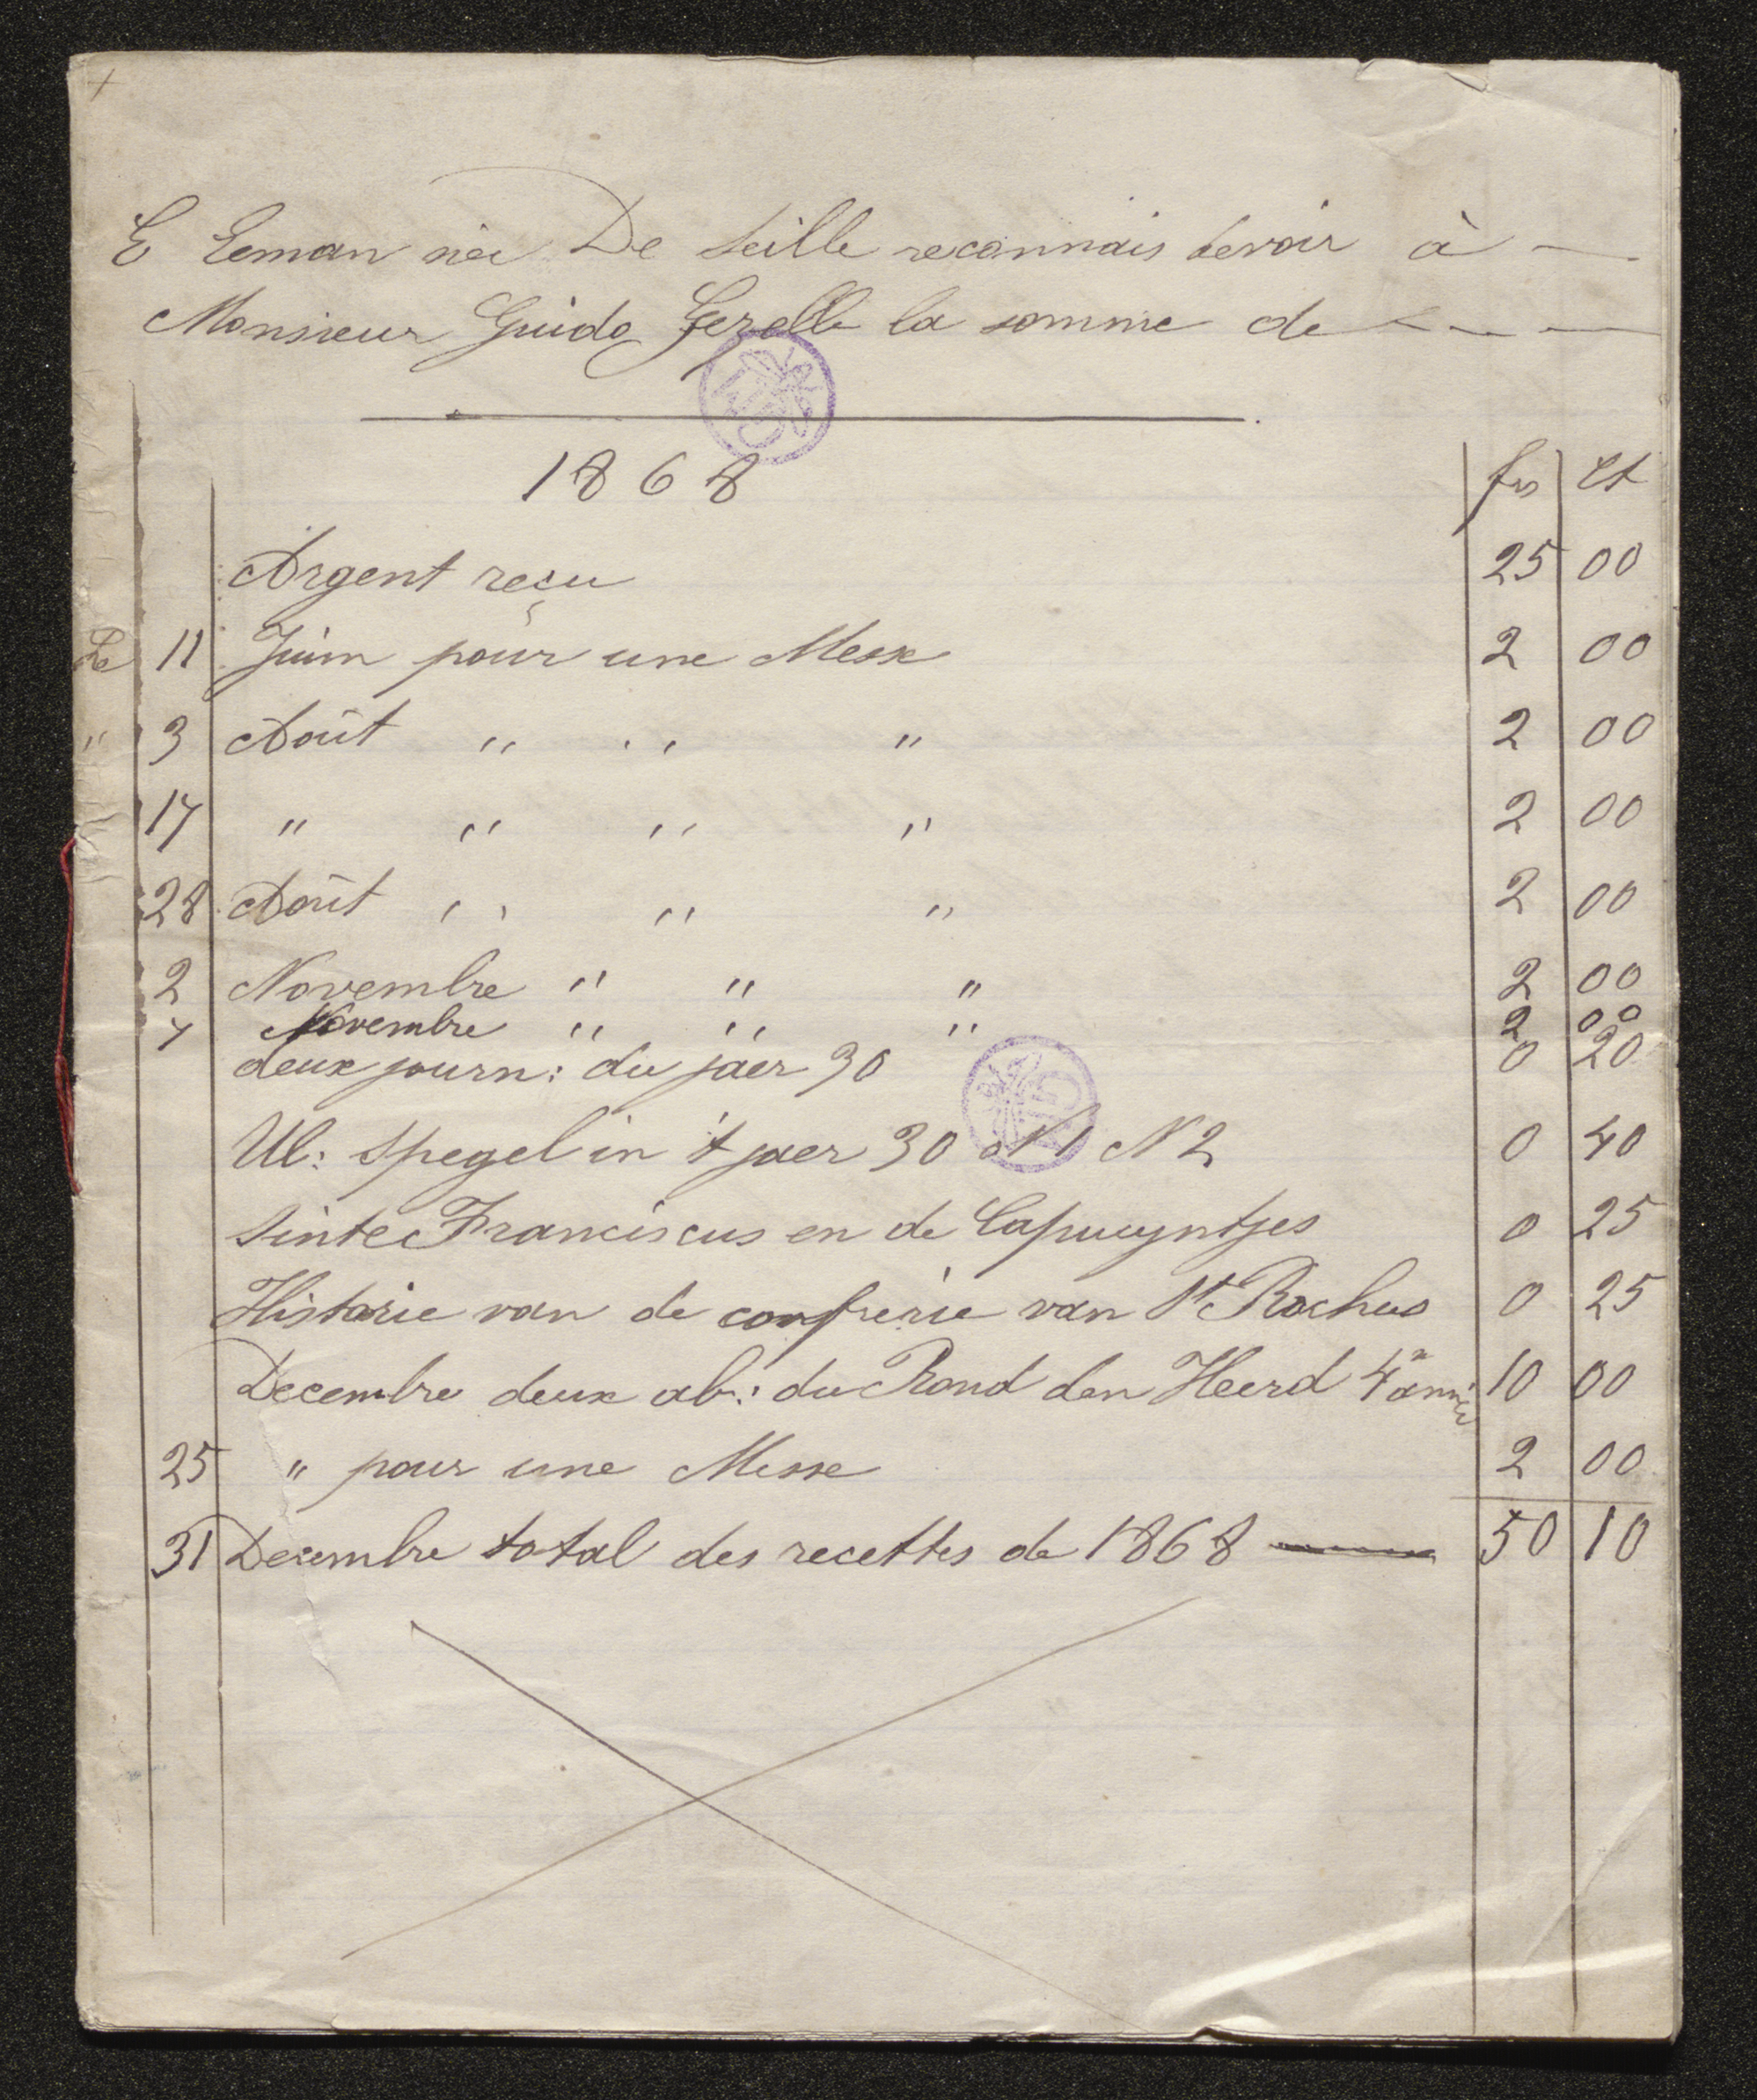 E Leman née De Seille reconnais devoir à —
Monsieur Guido Gezelle la somme de — — —
1868 frs ct
Argent reçu 25 00
Le 11 Juin pour une Messe 2 00
" 3 Août " " " 2 00
17 " " " " 2 00
28 Août " " " 2 00
2 Novembre " " " 2 00
7 Novembre " " " 2 00
deux journ: du jaer 30 0 20
Ul: Spegel in 't jaer 30 N 1 N 2 0 40
Sinte Franciscus en de Capucyntjes 0 25
Historie van de confrerie van St Rochus 0 25
Decembre deux ab: du Rond den Heerd 4e année 10 00
25 " pour une Messe 2 00
31 Decembre total des recettes de 1868 — 50 10